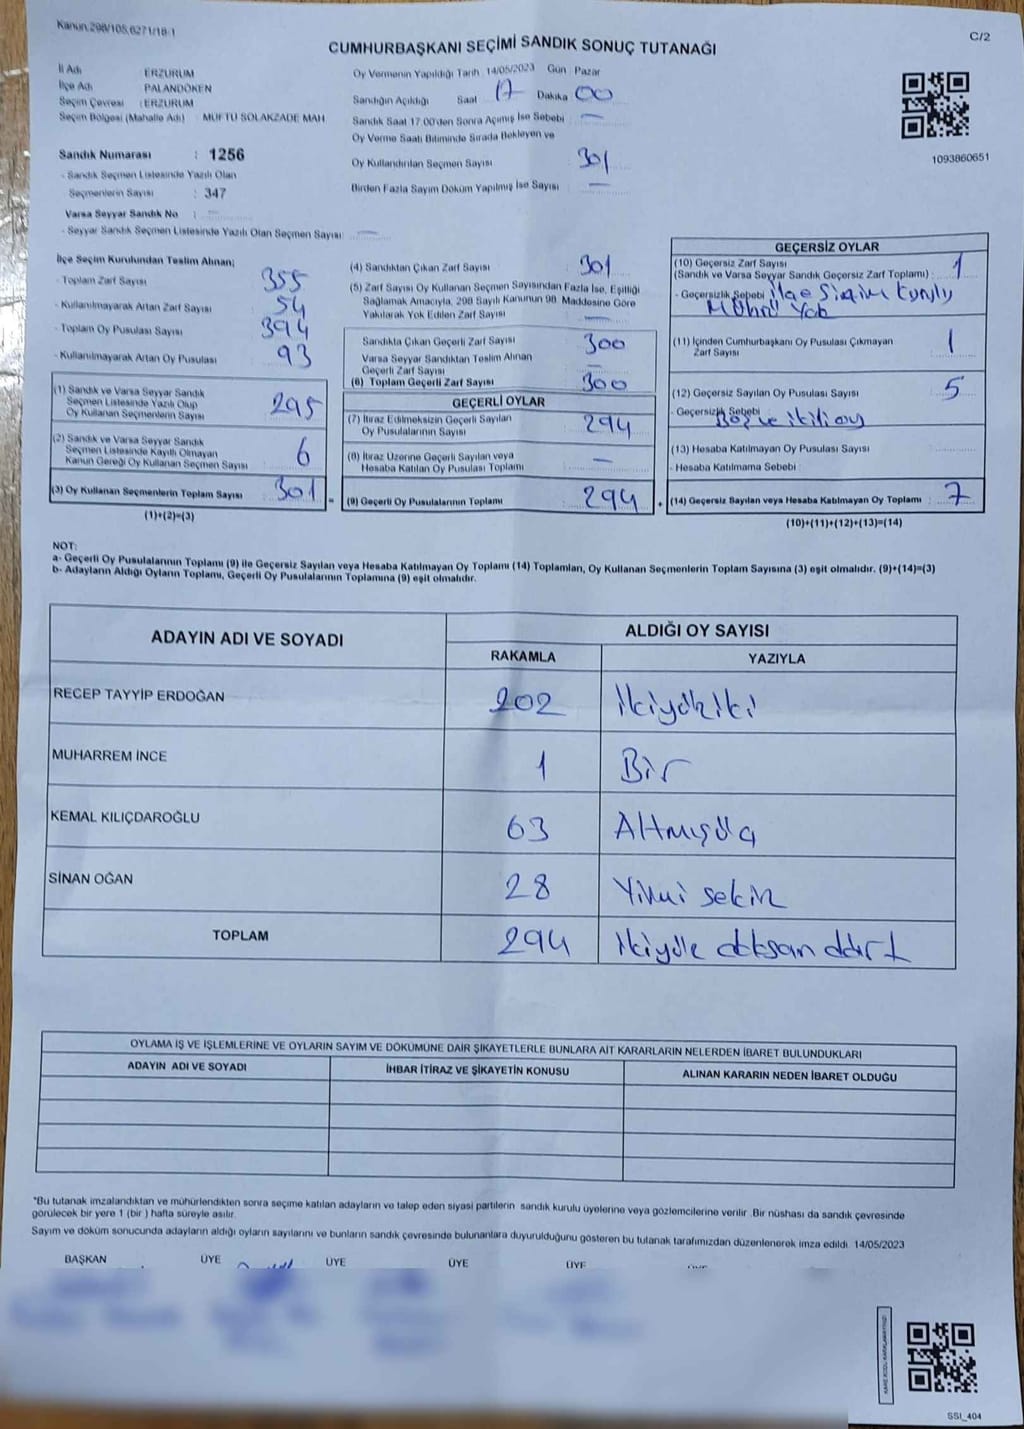 Kanun:298/105,6271/18-1
C/2
CUMHURBAŞKANI SEÇİMİ SANDIK SONUÇ TUTANAĞI
İl Adı ERZURUM
İlçe Adı PALANDÖKEN
Seçim Çevresi : ERZURUM
Seçim Bölgesi (Mahalle Adı) : MÜFTÜ SOLAKZADE MAH
Sandık Numarası : 1256
- Sandık Seçmen Listesinde Yazılı Olan
Seçmenlerin Sayısı : 347
Varsa Seyyar Sandık No : —
- Seyyar Sandık Seçmen Listesinde Yazılı Olan Seçmen Sayısı: —
Oy Vermenin Yapıldığı Tarih 14/05/2023 Gün : Pazar
Sandığın Açıldığı Saat 17 Dakika 00
Sandık Saat 17:00'den Sonra Açımış İse Sebebi : —
Oy Verme Saati Bitiminde Sırada Bekleyen ve
Oy Kullandırılan Seçmen Sayısı 301
Birden Fazla Sayım Döküm Yapılmış İse Sayısı —
1093860651
İlçe Seçim Kurulundan Teslim Alınan;
- Toplam Zarf Sayısı 355
- Kullanılmayarak Artan Zarf Sayısı 54
- Toplam Oy Pusulası Sayısı 394
- Kullanılmayarak Artan Oy Pusulası 93
(1) Sandık ve Varsa Seyyar Sandık
Seçmen Listesinde Yazılı Olup
Oy Kullanan Seçmenlerin Sayısı 295
(2) Sandık ve Varsa Seyyar Sandık
Seçmen Listesinde Kayıtlı Olmayan
Kanun Gereği Oy Kullanan Seçmen Sayısı 6
(3) Oy Kullanan Seçmenlerin Toplam Sayısı 301
(1)+(2)=(3)
=
(4) Sandıktan Çıkan Zarf Sayısı 301
(5) Zarf Sayısı Oy Kullanan Seçmen Sayısından Fazla İse, Eşitliği
Sağlamak Amacıyla, 298 Sayılı Kanunun 98. Maddesine Göre
Yakılarak Yok Edilen Zarf Sayısı —
Sandıkta Çıkan Geçerli Zarf Sayısı 300
Varsa Seyyar Sandıktan Teslim Alınan
Geçerli Zarf Sayısı —
(6) Toplam Geçerli Zarf Sayısı 300
GEÇERLİ OYLAR
(7) İtiraz Edilmeksizin Geçerli Sayılan
Oy Pusulalarının Sayısı 294
(8) İtiraz Üzerine Geçerli Sayılan veya
Hesaba Katılan Oy Pusulası Toplamı —
(9) Geçerli Oy Pusulalarının Toplamı 294
+
GEÇERSİZ OYLAR
(10) Geçersiz Zarf Sayısı
(Sandık ve Varsa Seyyar Sandık Geçersiz Zarf Toplamı) : 1
- Geçersizlik Sebebi ilçe Seçim Kurulu
Mührü Yok
(11) İçinden Cumhurbaşkanı Oy Pusulası Çıkmayan
Zarf Sayısı 1
(12) Geçersiz Sayılan Oy Pusulası Sayısı 5
- Geçersizlik Sebebi Boş ve ikili oy
(13) Hesaba Katılmayan Oy Pusulası Sayısı
- Hesaba Katılmama Sebebi
(14) Geçersiz Sayılan veya Hesaba Katılmayan Oy Toplamı : 7
(10)+(11)+(12)+(13)=(14)
NOT:
a- Geçerli Oy Pusulalarının Toplamı (9) ile Geçersiz Sayılan veya Hesaba Katılmayan Oy Toplamı (14) Toplamları, Oy Kullanan Seçmenlerin Toplam Sayısına (3) eşit olmalıdır. (9)+(14)=(3)
b- Adayların Aldığı Oyların Toplamı, Geçerli Oy Pusulalarının Toplamına (9) eşit olmalıdır.
ADAYIN ADI VE SOYADI
ALDIĞI OY SAYISI
RAKAMLA YAZIYLA
RECEP TAYYİP ERDOĞAN 202 ikiyüziki
MUHARREM İNCE 1 Bir
KEMAL KILIÇDAROĞLU 63 Altmışüç
SİNAN OĞAN 28 Yirmi sekiz
TOPLAM 294 ikiyüz doksan dört
OYLAMA İŞ VE İŞLEMLERİNE VE OYLARIN SAYIM VE DÖKÜMÜNE DAİR ŞİKAYETLERLE BUNLARA AİT KARARLARIN NELERDEN İBARET BULUNDUKLARI
ADAYIN ADI VE SOYADI İHBAR İTİRAZ VE ŞİKAYETİN KONUSU ALINAN KARARIN NEDEN İBARET OLDUĞU
*Bu tutanak imzalandıktan ve mühürlendikten sonra seçime katılan adayların ve talep eden siyasi partilerin sandık kurulu üyelerine veya gözlemcilerine verilir. Bir nüshası da sandık çevresinde
görülecek bir yere 1 (bir ) hafta süreyle asılır.
Sayım ve döküm sonucunda adayların aldığı oyların sayılarını ve bunların sandık çevresinde bulunanlara duyurulduğunu gösteren bu tutanak tarafımızdan düzenlenerek imza edildi. 14/05/2023
BAŞKAN ÜYE ÜYE ÜYE ÜYE
SSI_404